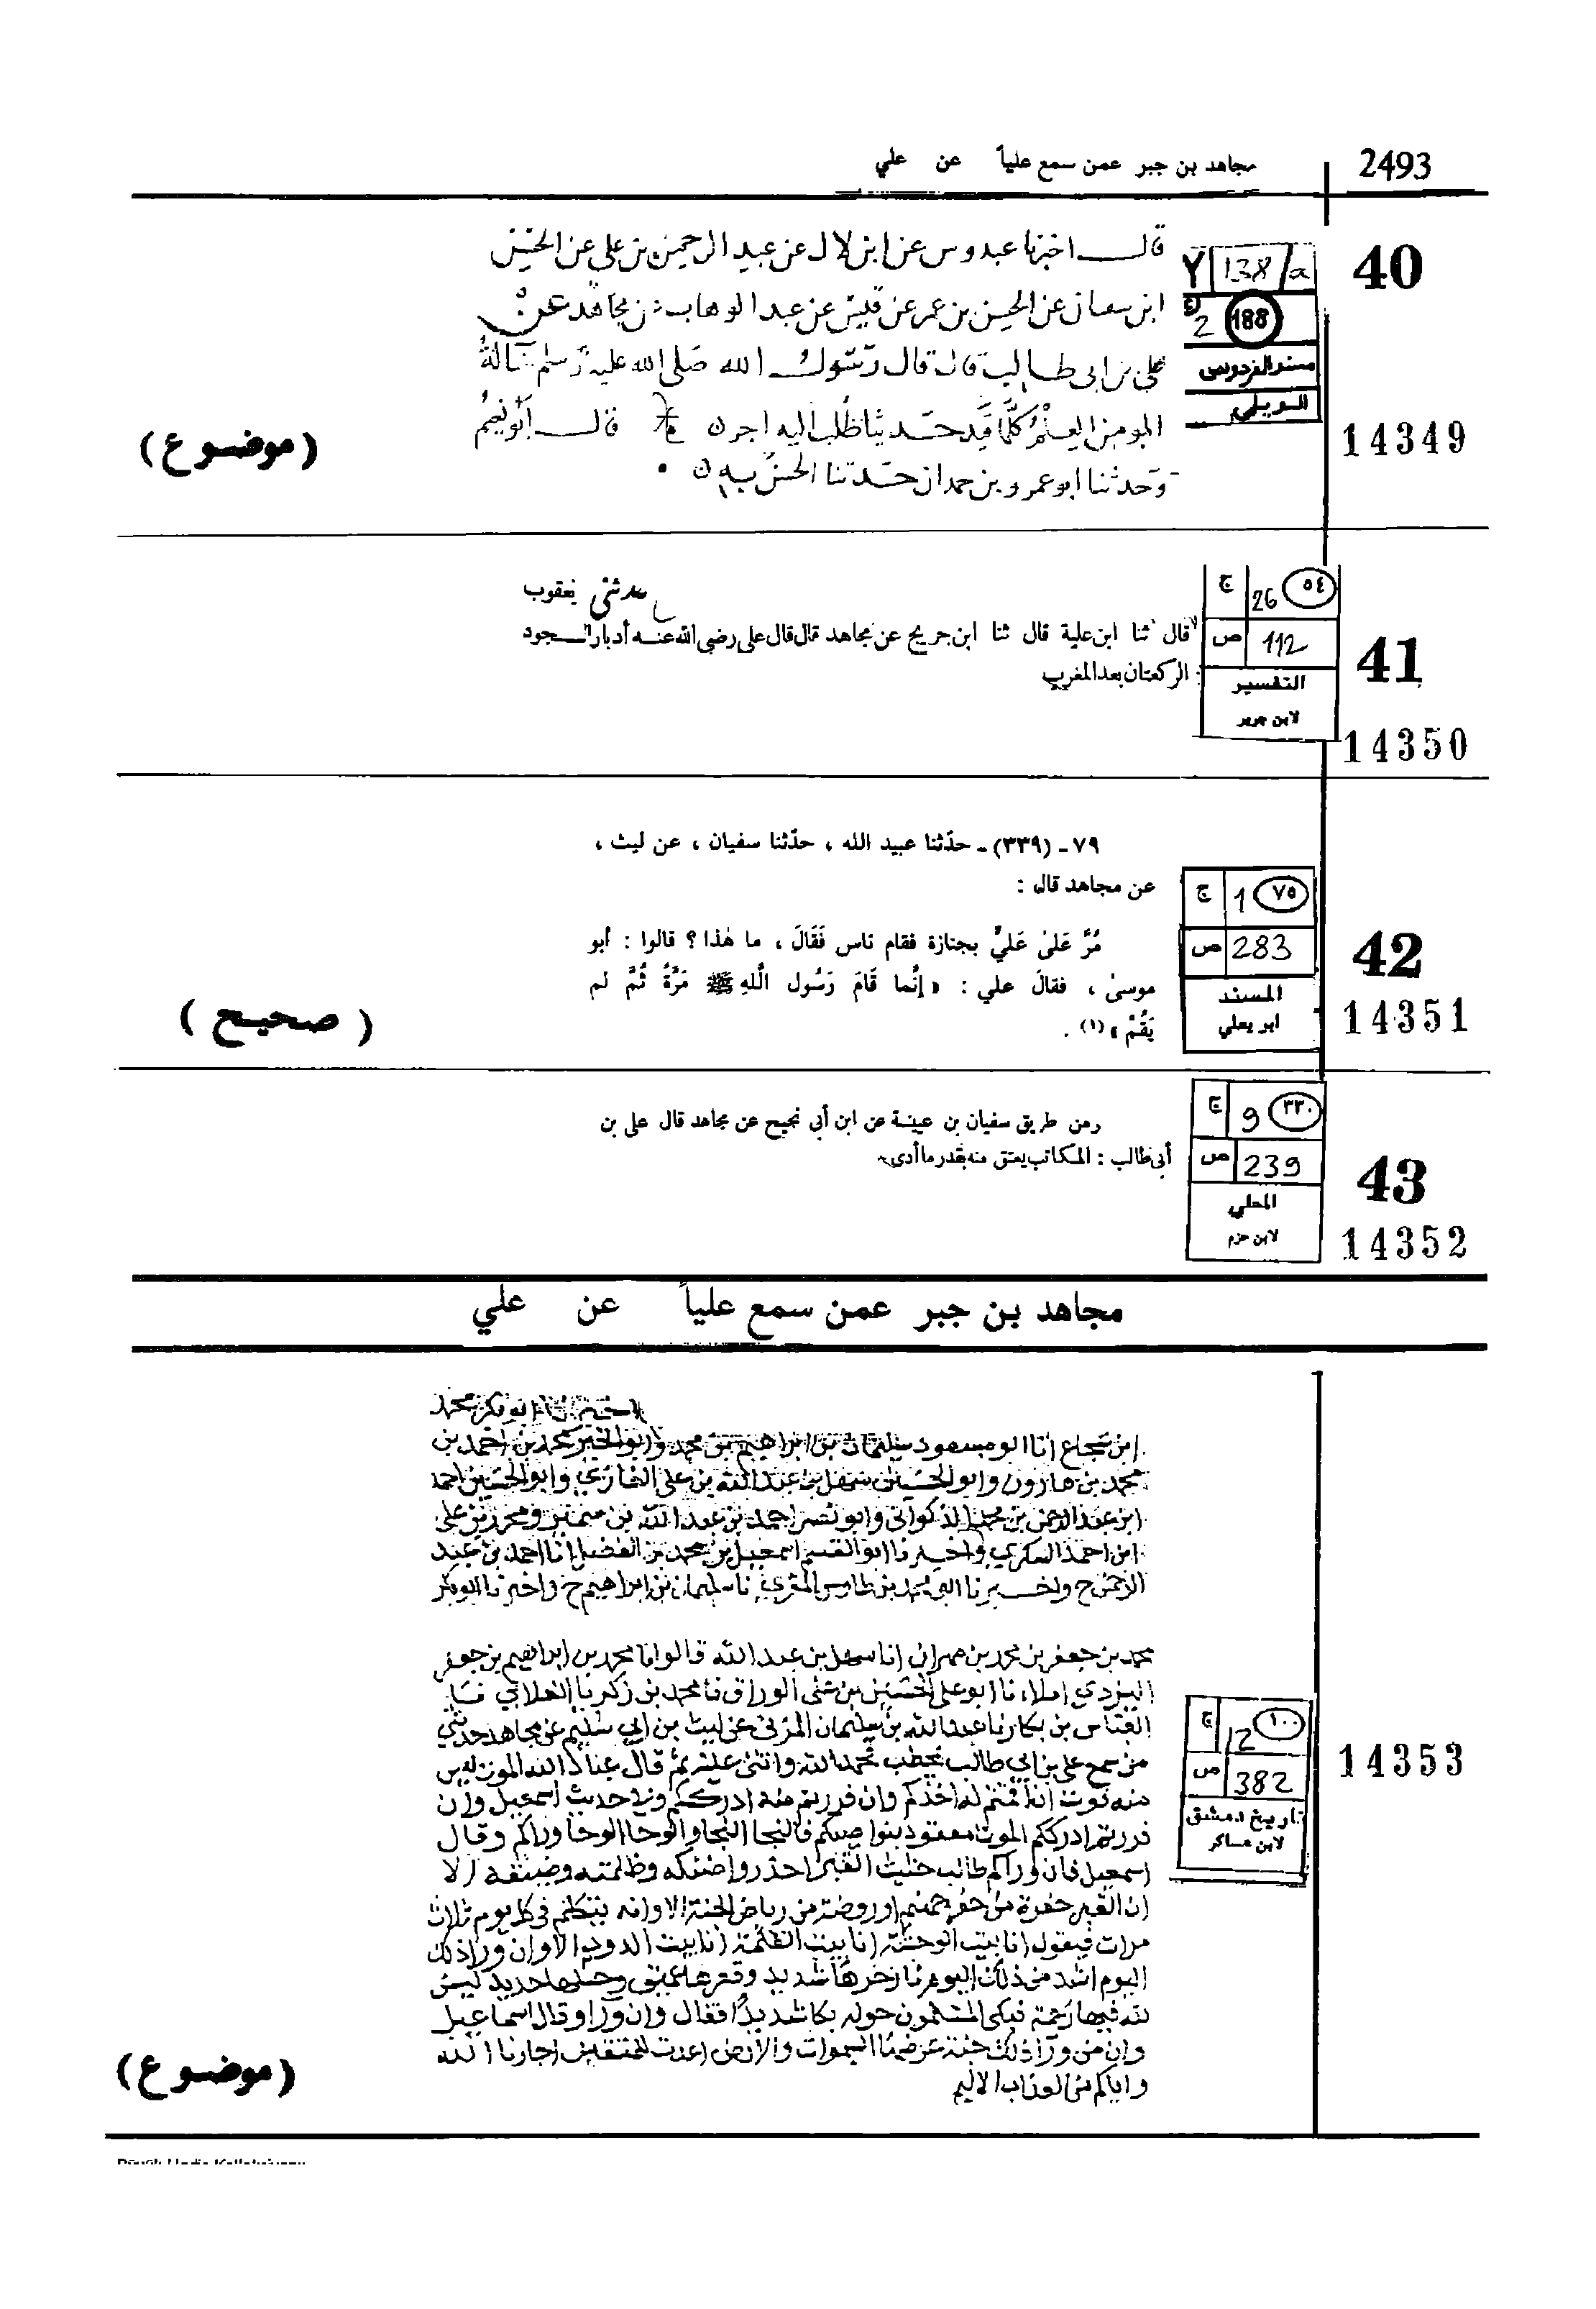 مجاهد بن جبر عمن سمع علياً عن علي 2493
40
قال اخبرنا عبدوس عن ابن لال عن عبد الرحمن بن علي عن الحسين
Y 138/a
ابن سعان عن الحسن بن عمر عن قيس عن عبد الوهاب عن مجاهد عن
2 188
علي بن ابي طالب قال قال رسول الله صلى الله عليه وسلم ضالة
مسند الفردوس
الديلمي
المومن العلم كلما قيد حديثا طلب اليه اخر قال أبو نعيم
14349
(موضوع)
وحدثنا ابو عمرو بن حمدان حدثنا الحسن به
حدثني يعقوب
ج 26 ٥٤
قال ثنا ابن علية قال ثنا ابن جريج عن مجاهد قال قال على رضى الله عنه أدبار السجود
ص 112
41
الركعتان بعد المغرب
التفسير
لابن جرير
14350
٧٩ - (٣٣٩) - حدّثنا عبيد الله ، حدّثنا سفيان ، عن ليث ،
عن مجاهد قال :
ج 1 ٧٥
مُرَّ عَلىٰ عَليٍّ بجنازة فقام ناس فَقَالَ ، ما هٰذا ؟ قالوا : أبو
ص 283
42
موسىٰ ، فقالَ علي : « إنَّما قَامَ رَسُول اللهِ ﷺ مَرَّةً ثُمَّ لم
المسند
ابو يعلي
14351
يَقُمْ » (١) .
(صحيح)
ومن طريق سفيان بن عيينة عن ابن أبي نجيح عن مجاهد قال على بن
ج 9 ٣٣٠
أبى طالب : المكاتب يعتق منه بقدر ما أدى
ص 239
43
المحلي
لابن حزم
14352
مجاهد بن جبر عمن سمع علياً عن علي
اخبرنا ابو بكر محمد
ابن شجاع انا ابو مسعود سليمان بن ابراهيم بن محمد وابو الخير محمد بن احمد بن
محمد بن هارون وابو الحسين سهل بن عبد الله بن علي الغازي وابو الحسين احمد
ابن عبد الرحمن بن محمد الذكواني وابو نصر احمد بن عبد الله بن سمير ومحمد بن علي
ابن احمد السكري واخبرنا ابو القسم اسمعيل بن محمد بن الفضل انا احمد بن عبد
الرحمن ح واخبرنا ابو محمد بن طاوس المقري نا سليمان بن ابراهيم ح واخبرنا ابو بكر
محمد بن جعفر بن محمد بن مهران انا سهل بن عبد الله قالوا نا محمد بن ابراهيم بن جعفر
اليزدي املاء نا ابو علي الحسين بن علي الوراق نا محمد بن زكريا الغلابي نا
العباس بن بكار نا عبد الله بن سليمان المزني عن ليث بن ابي سليم عن مجاهد حدثني
من سمع علي بن ابي طالب يخطب فحمد الله واثنى عليه ثم قال عباد الله الموت ليس
منه فوت ان اقمتم له اخذكم وان فررتم منه ادرككم وفي حديث اسمعيل وان
فررتم ادرككم الموت معقود بنواصيكم فالنجا النجا والوحا الوحا وراكم وقال
اسمعيل فان وراكم طالب حثيث القبر احذروا ضنكه وظلمته وضيقه الا
ان القبر حفرة من حفر جهنم او روضة من رياض الجنة الا وانه يتكلم في كل يوم ثلاث
مرات فيقول انا بيت الوحشة انا بيت الظلمة انا بيت الدود الا وان ورا ذلك
اليوم اشد من ذلك اليوم نار حرها شديد وقعرها عميق وحليها حديد ليس
لله فيها رحمة فبكى المسلمون حوله بكا شديدا فقال وان ورا وقال اسماعيل
وان من ورا ذلك جنة عرضها السموات والارض اعدت للمتقين اجارنا الله
واياكم من العذاب الاليم
ج 12 ١٠٠
ص 382
تاريخ دمشق
لابن عساكر
14353
(موضوع)